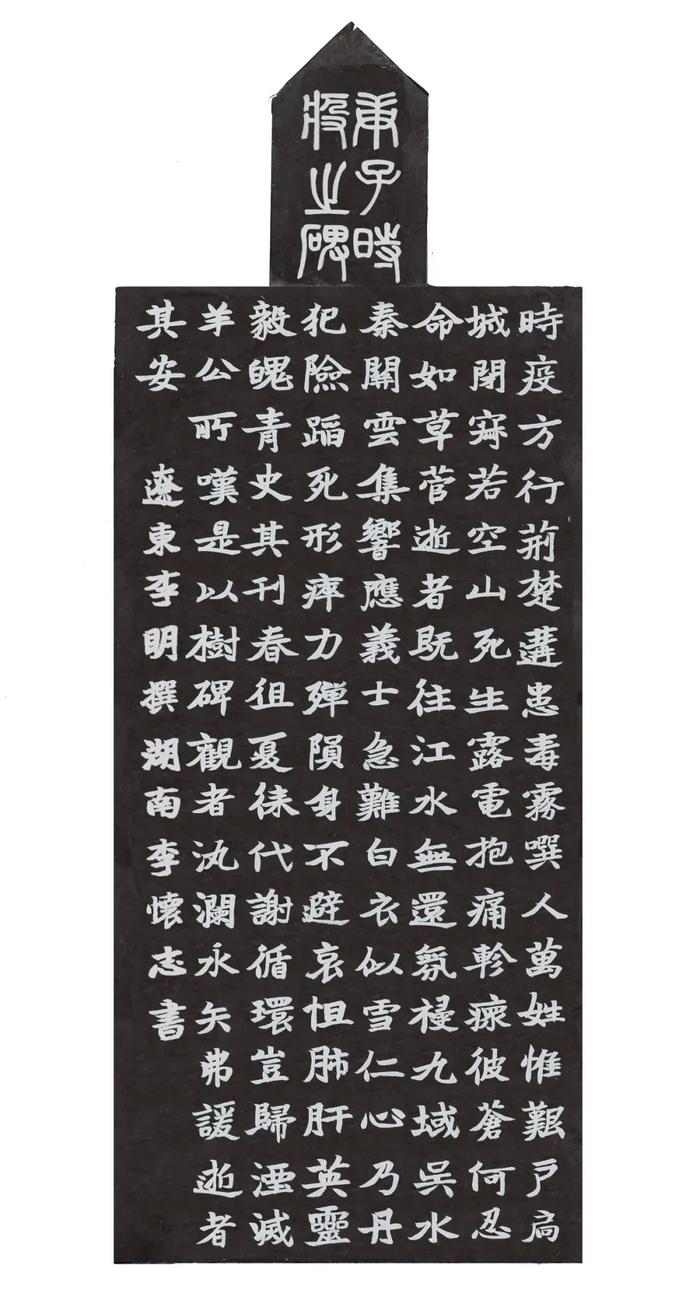 庚子時
疫之碑
時疫方行荊楚遘患毒霧噀人萬姓惟艱戶扃
城閉寂若空山死生露電抱痛軫瘝彼蒼何忍
命如草菅逝者既往江水無還氛祲九域吳水
秦關雲集響應義士急難白衣似雪仁心乃丹
犯險蹈死形瘁力殫隕身不避哀怛肺肝英靈
毅魄青史其刊春徂夏徠代謝循環豈歸湮滅
羊公所嘆是以樹碑觀者汍瀾永矢弗諼逝者
其安 遼東李明撰湖南李懷志書